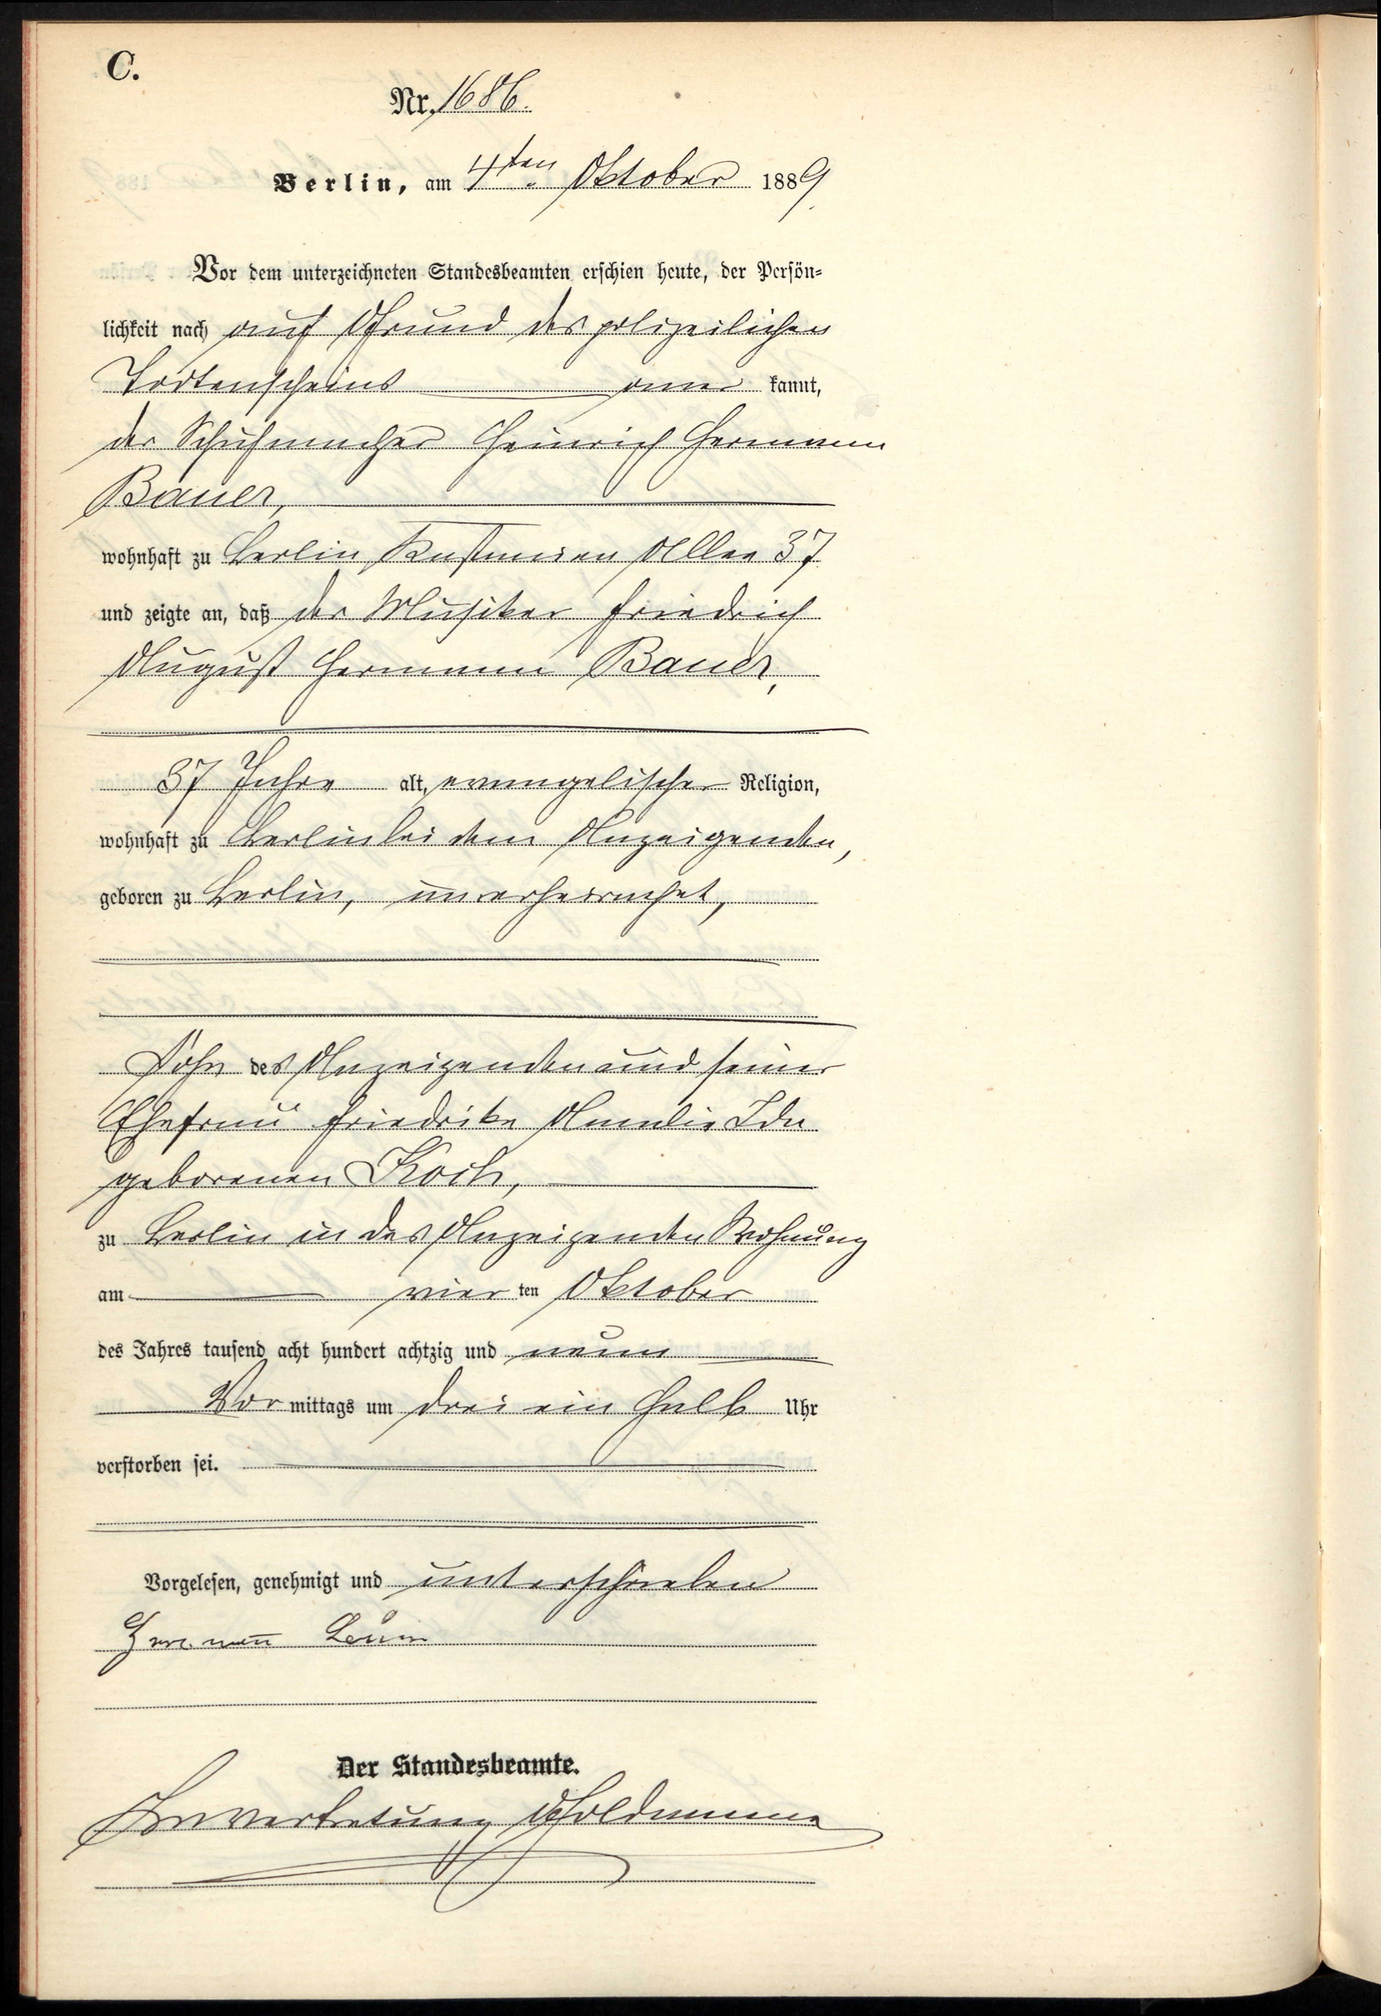 C.
Nr. 1686.
Berlin, am 4ten Oktober 1889.
Vor dem unterzeichneten Standesbeamten erschien heute, der Persön-
lichkeit nach auf Grund des polizeilichen
Todtenscheins aner kannt,
der Schuhmacher Heinrich Hermann
Bauer,
wohnhaft zu Berlin Kastanien Allee 37
und zeigte an, daß der Musiker Friedrich
August Hermann Bauer,
37 Jahre alt, evangelischer Religion,
wohnhaft zu Berlin bei dem Anzeigenden,
geboren zu Berlin, unverheirathet,
Sohn des Anzeigenden und seiner
Ehefrau Friedrike Amalie Ida
geborenen Koch,
zu Berlin in des Anzeigenden Wohnung
am vier ten Oktober
des Jahres tausend acht hundert achtzig und neun
Vor mittags um drei ein halb Uhr
verstorben sei.
Vorgelesen, genehmigt und unterschrieben
Hermann Bauer
Der Standesbeamte.
In Vertretung Goldmann